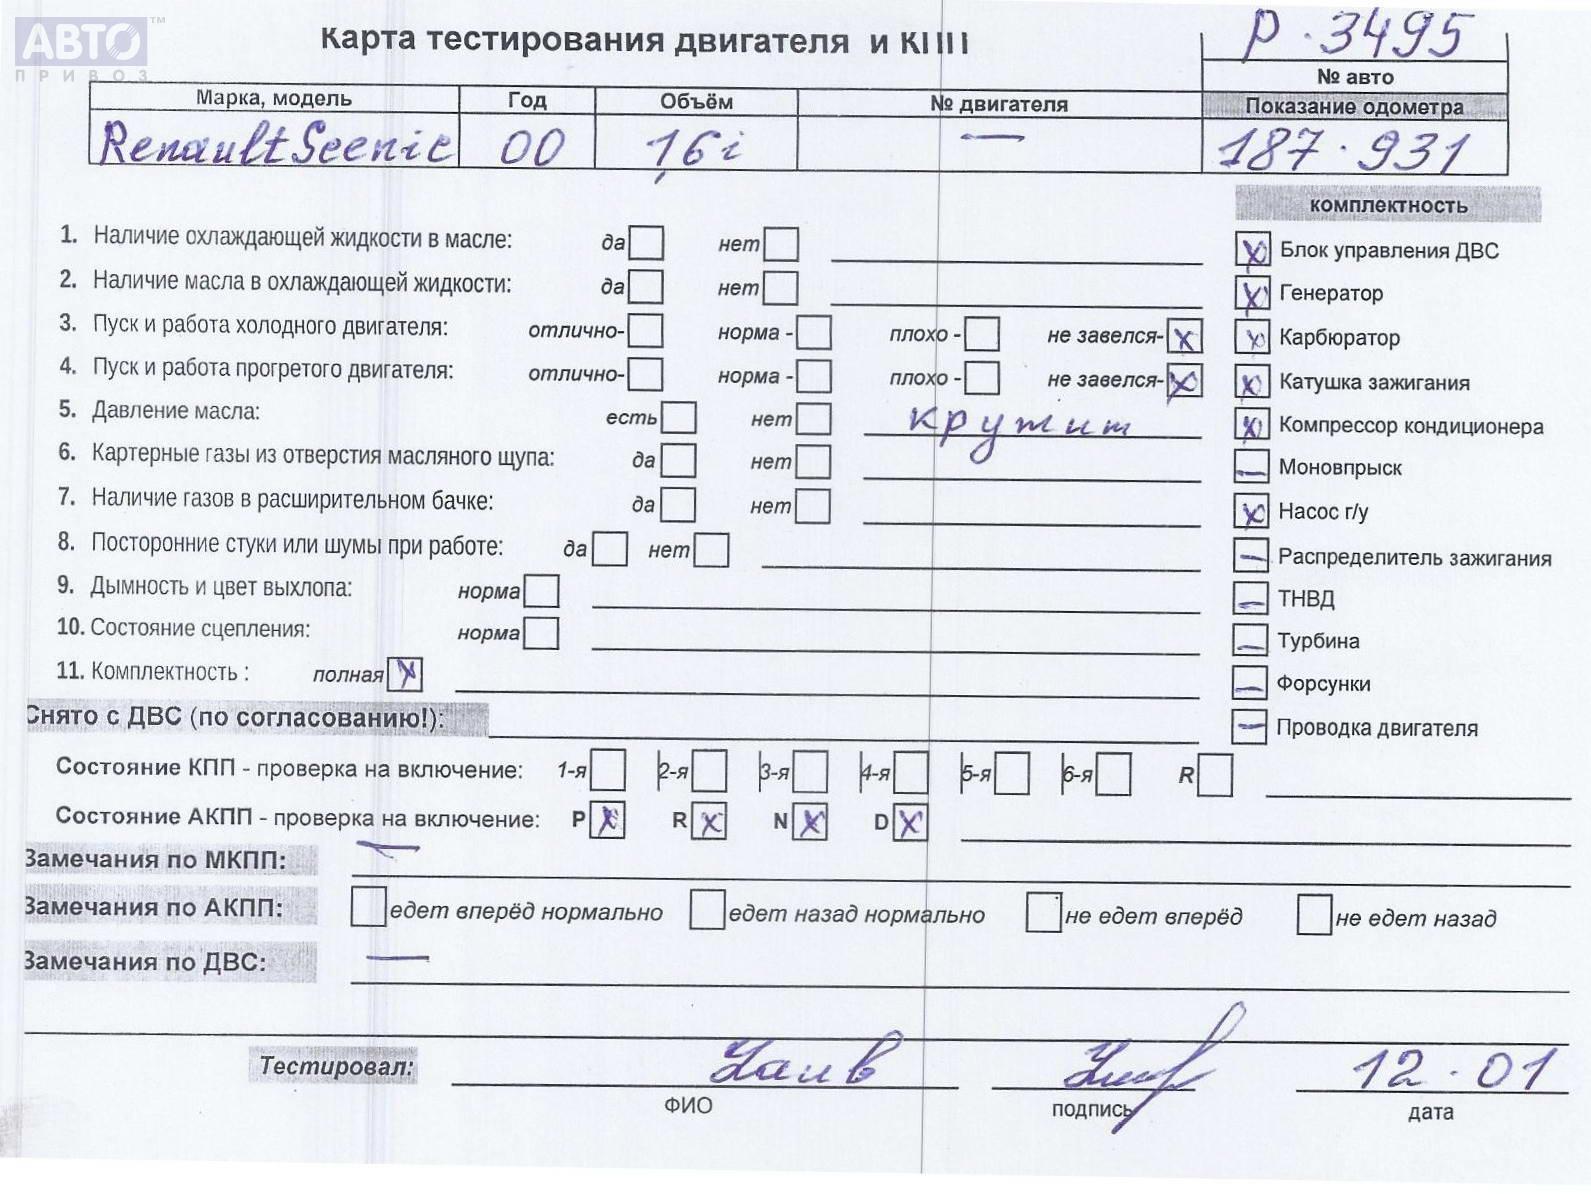 АВТО™
ПРИВОЗ
Карта тестирования двигателя и КПП
Р. 3495
№ авто
Марка, модель Год Объём № двигателя Показание одометра
Renault Scenic 00 1,6i — 187.931
комплектность
1. Наличие охлаждающей жидкости в масле: да нет
Блок управления ДВС
2. Наличие масла в охлаждающей жидкости: да нет
Генератор
3. Пуск и работа холодного двигателя: отлично- норма - плохо - не завелся- x
Карбюратор
4. Пуск и работа прогретого двигателя: отлично- норма - плохо - не завелся- x
Катушка зажигания
5. Давление масла: есть нет крутит
Компрессор кондиционера
6. Картерные газы из отверстия масляного щупа: да нет
Моновпрыск
7. Наличие газов в расширительном бачке: да нет
Насос г/у
8. Посторонние стуки или шумы при работе: да нет
Распределитель зажигания
9. Дымность и цвет выхлопа: норма
ТНВД
10. Состояние сцепления: норма
Турбина
11. Комплектность : полная x
Форсунки
Снято с ДВС (по согласованию!):
Проводка двигателя
Состояние КПП - проверка на включение: 1-я 2-я 3-я 4-я 5-я 6-я R
Состояние АКПП - проверка на включение: P x R x N x D x
Замечания по МКПП: —
Замечания по АКПП: едет вперёд нормально едет назад нормально не едет вперёд не едет назад
Замечания по ДВС: —
Тестировал: 12.01
ФИО подпись дата